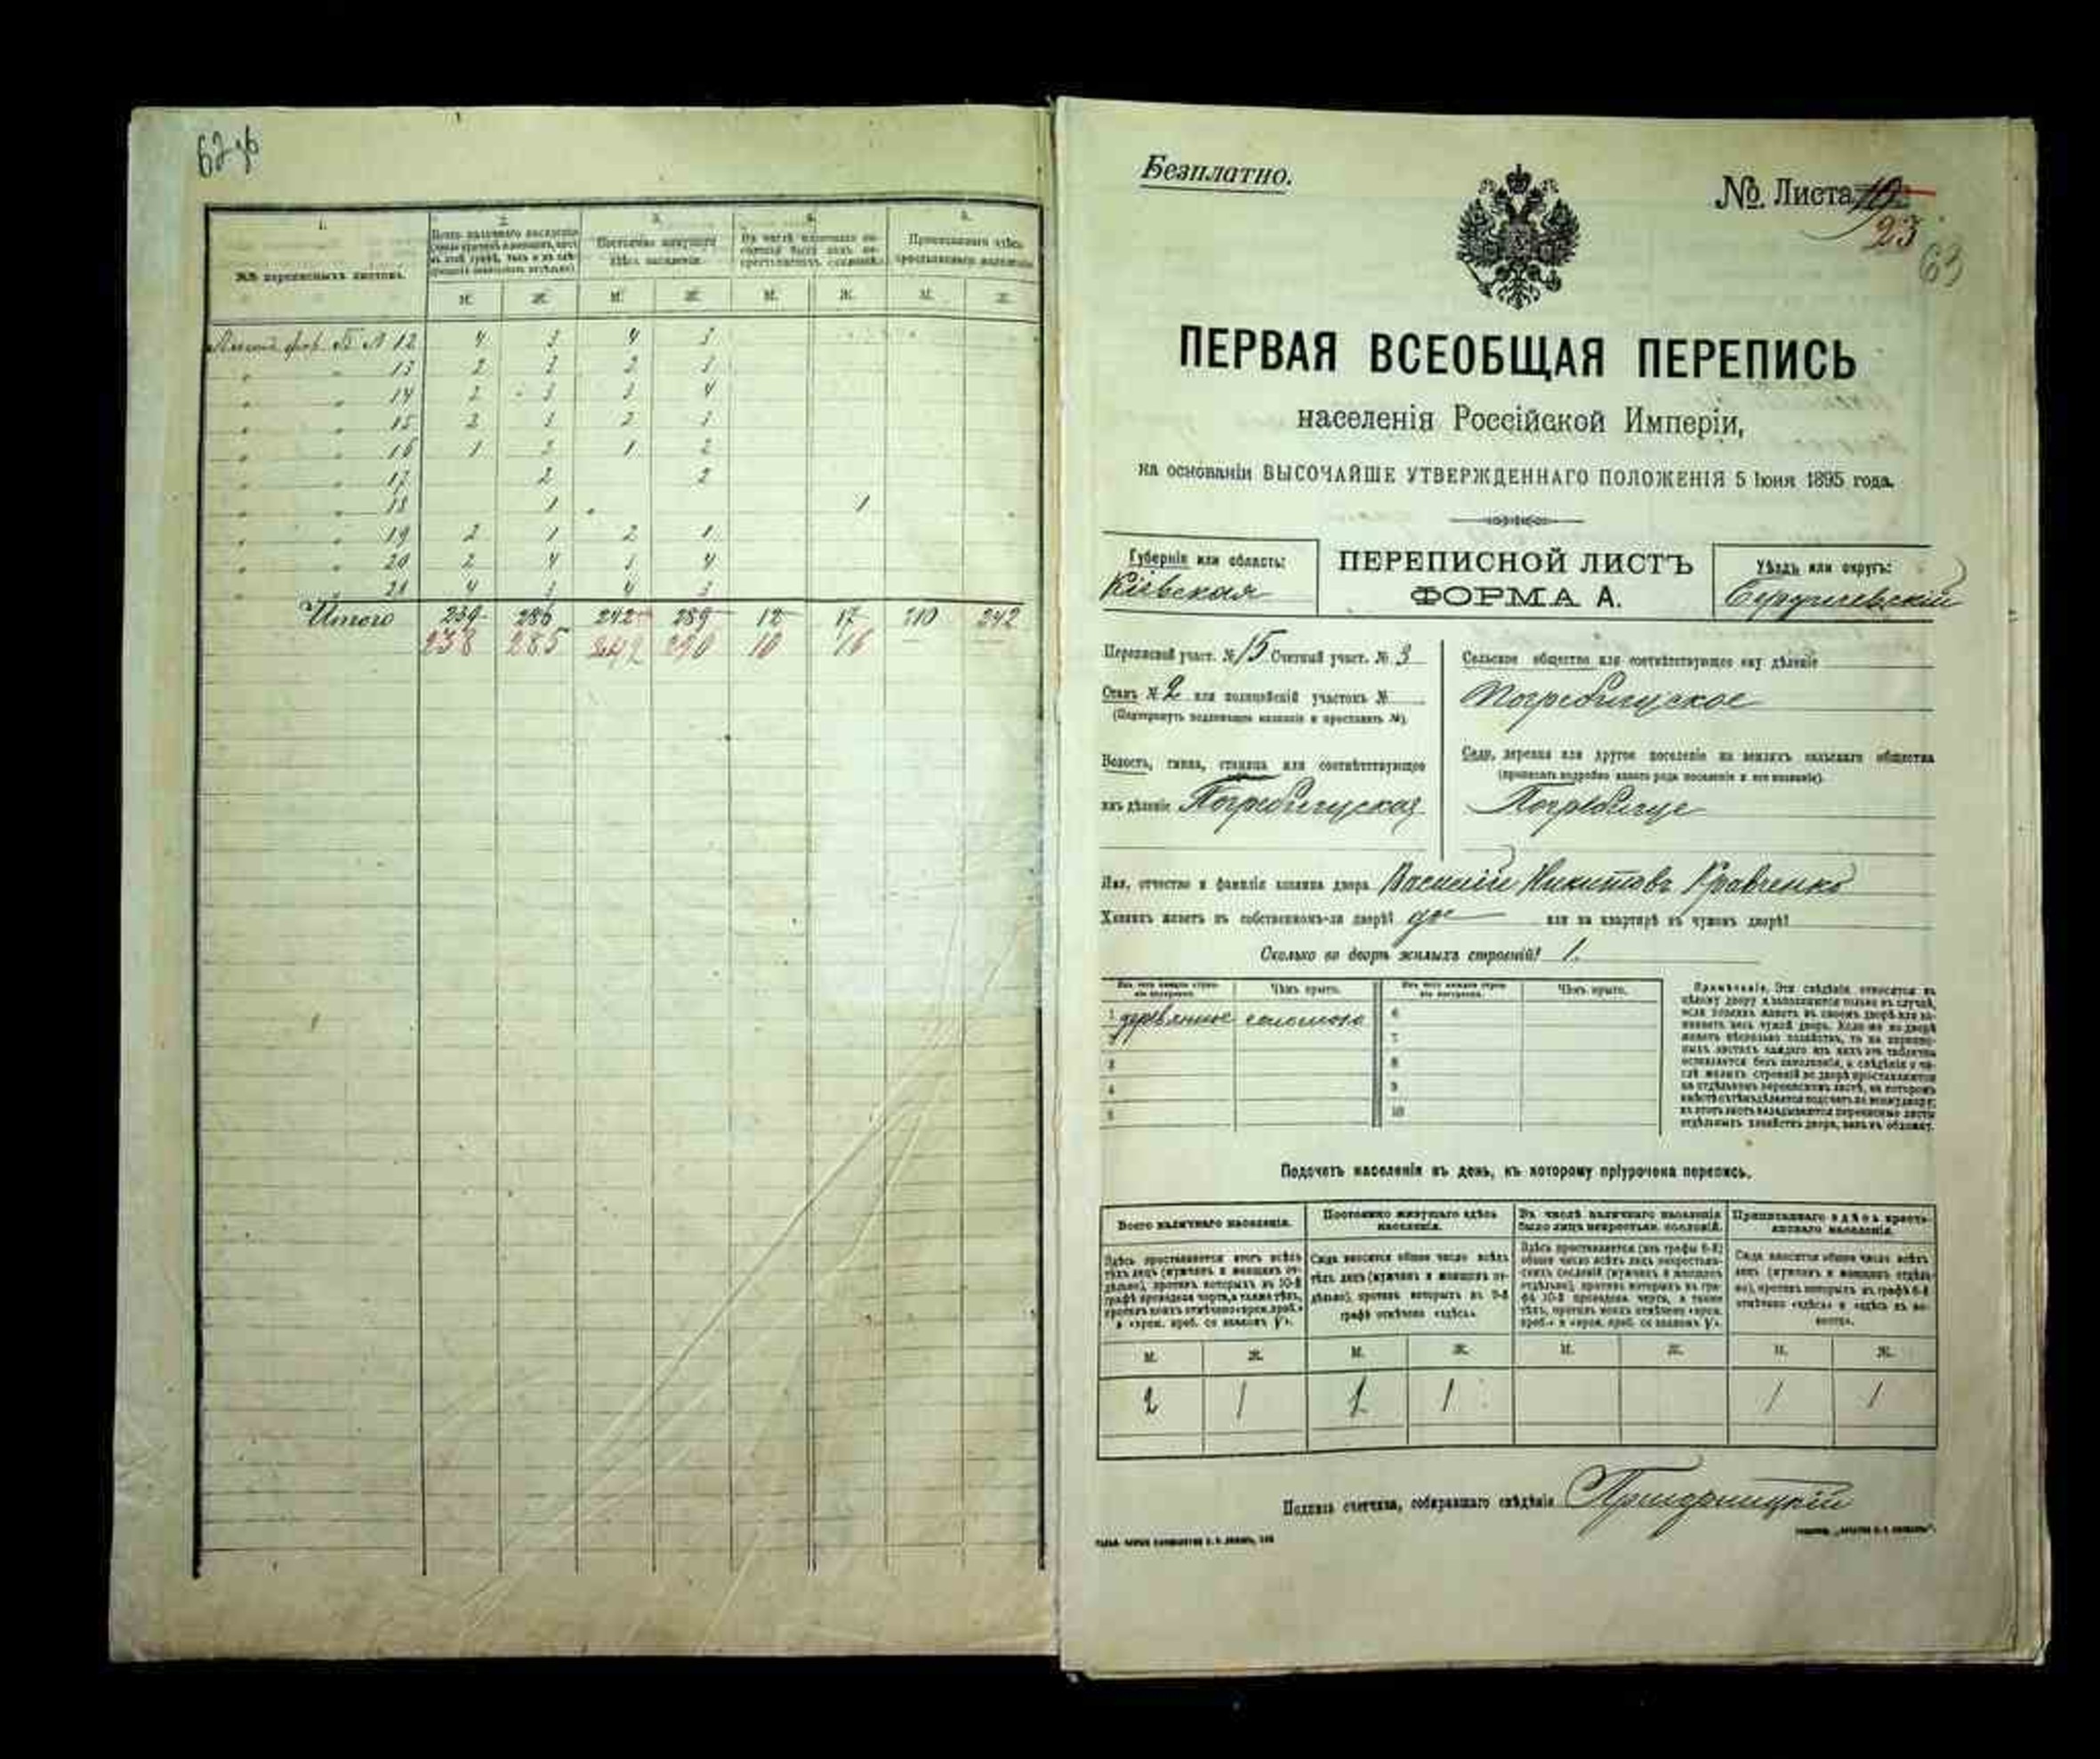 62 об
1. 2. 3. 4. 5.
№№ переписныхъ листовъ.
Постоянно живущаго здѣсь населенія.
М. Ж. М. Ж. М. Ж. М. Ж.
12 4 3 4 3
" " 13 2 3 2 3
" " 14 2 3 3 4
" " 15 2 3 2 3
" " 16 1 2 1 2
" " 17 2 2
" " 18 1 1
" " 19 2 1 2 1
" " 20 2 4 3 4
" " 21 4 3 4 3
Итого 239 286 242 289 12 17 210 242
238 285 242 290 10 16
Безплатно.
№ Листа 19
23
63
ПЕРВАЯ ВСЕОБЩАЯ ПЕРЕПИСЬ
населенія Россійской Имперіи,
на основаніи ВЫСОЧАЙШЕ УТВЕРЖДЕННАГО ПОЛОЖЕНІЯ 5 Іюня 1895 года.
Губернія или область:
Кіевская
ПЕРЕПИСНОЙ ЛИСТЪ
ФОРМА А.
Уѣздъ или округъ:
Бердичевскій
Переписной участ. № 15 Счетный участ. № 3
Станъ № 2 или полицейскій участокъ №
(Подчеркнуть подлежащее названіе и проставить №).
Волость, гмина, станица или соотвѣтствующее
имъ дѣленіе Погребищская
Сельское общество или соотвѣтствующее ему дѣленіе
Погребищское
Село, деревня или другое поселеніе на земляхъ сельскаго общества
(прописать подробно какого рода поселеніе и его названіе).
Погребище
Имя, отчество и фамилія хозяина двора Василій Никитовъ Кравченко
Хозяинъ живетъ въ собственномъ-ли дворѣ? да или на квартирѣ въ чужомъ дворѣ?
Сколько во дворѣ жилыхъ строеній? 1.
Изъ чего каждое строеніе построено. Чѣмъ крыто. Изъ чего каждое строеніе построено. Чѣмъ крыто.
1 деревянное соломою 6
2 7
3 8
4 9
5 10
Примѣчаніе. Эти свѣдѣнія относятся къ
цѣлому двору и заполняются только въ случаѣ,
если хозяинъ живетъ въ своемъ дворѣ или за-
нимаетъ весь чужой дворъ. Если же во дворѣ
живетъ нѣсколько хозяйствъ, то на перепис-
ныхъ листахъ каждаго изъ нихъ эта табличка
оставляется безъ заполненія, а свѣдѣнія о чи-
слѣ жилыхъ строеній во дворѣ проставляются
на отдѣльномъ переписномъ листѣ, на которомъ
вмѣстѣ съ тѣмъ дѣлается подсчетъ по всему двору;
въ этотъ листъ вкладываются переписные листы
отдѣльныхъ хозяйствъ двора, какъ въ обложку.
Подсчетъ населенія въ день, къ которому пріурочена перепись.
Всего наличнаго населенія.
Здѣсь проставляется итогъ всѣхъ
тѣхъ лицъ (мужчинъ и женщинъ от-
дѣльно), противъ которыхъ въ 10-й
графѣ проведена черта, а также тѣхъ,
противъ коихъ отмѣчено «врем. проб.»
и «врем. проб. со знакомъ V».
Постоянно живущаго здѣсь населенія.
Сюда вносится общее число всѣхъ
тѣхъ лицъ (мужчинъ и женщинъ от-
дѣльно), противъ которыхъ въ 9-й
графѣ отмѣчено «здѣсь».
Въ числѣ наличнаго населенія
было лицъ некрестьян. сословій.
Здѣсь проставляется (изъ графы 6-й)
общее число всѣхъ лицъ некрестьян-
скихъ сословій (мужчинъ и женщинъ
отдѣльно), противъ которыхъ въ гра-
фѣ 10-й проведена черта, а также
тѣхъ, противъ коихъ отмѣчено «врем.
проб.» и «врем. проб. со знакомъ V».
Приписаннаго здѣсь кресть-
янскаго населенія.
Сюда вносится общее число всѣхъ
лицъ (мужчинъ и женщинъ отдѣль-
но), противъ которыхъ въ графѣ 8-й
отмѣчено «здѣсь» и «здѣсь въ во-
лости».
М. Ж. М. Ж. М. Ж. М. Ж.
2 1 1 1 1 1
Подпись счетчика, собиравшаго свѣдѣнія